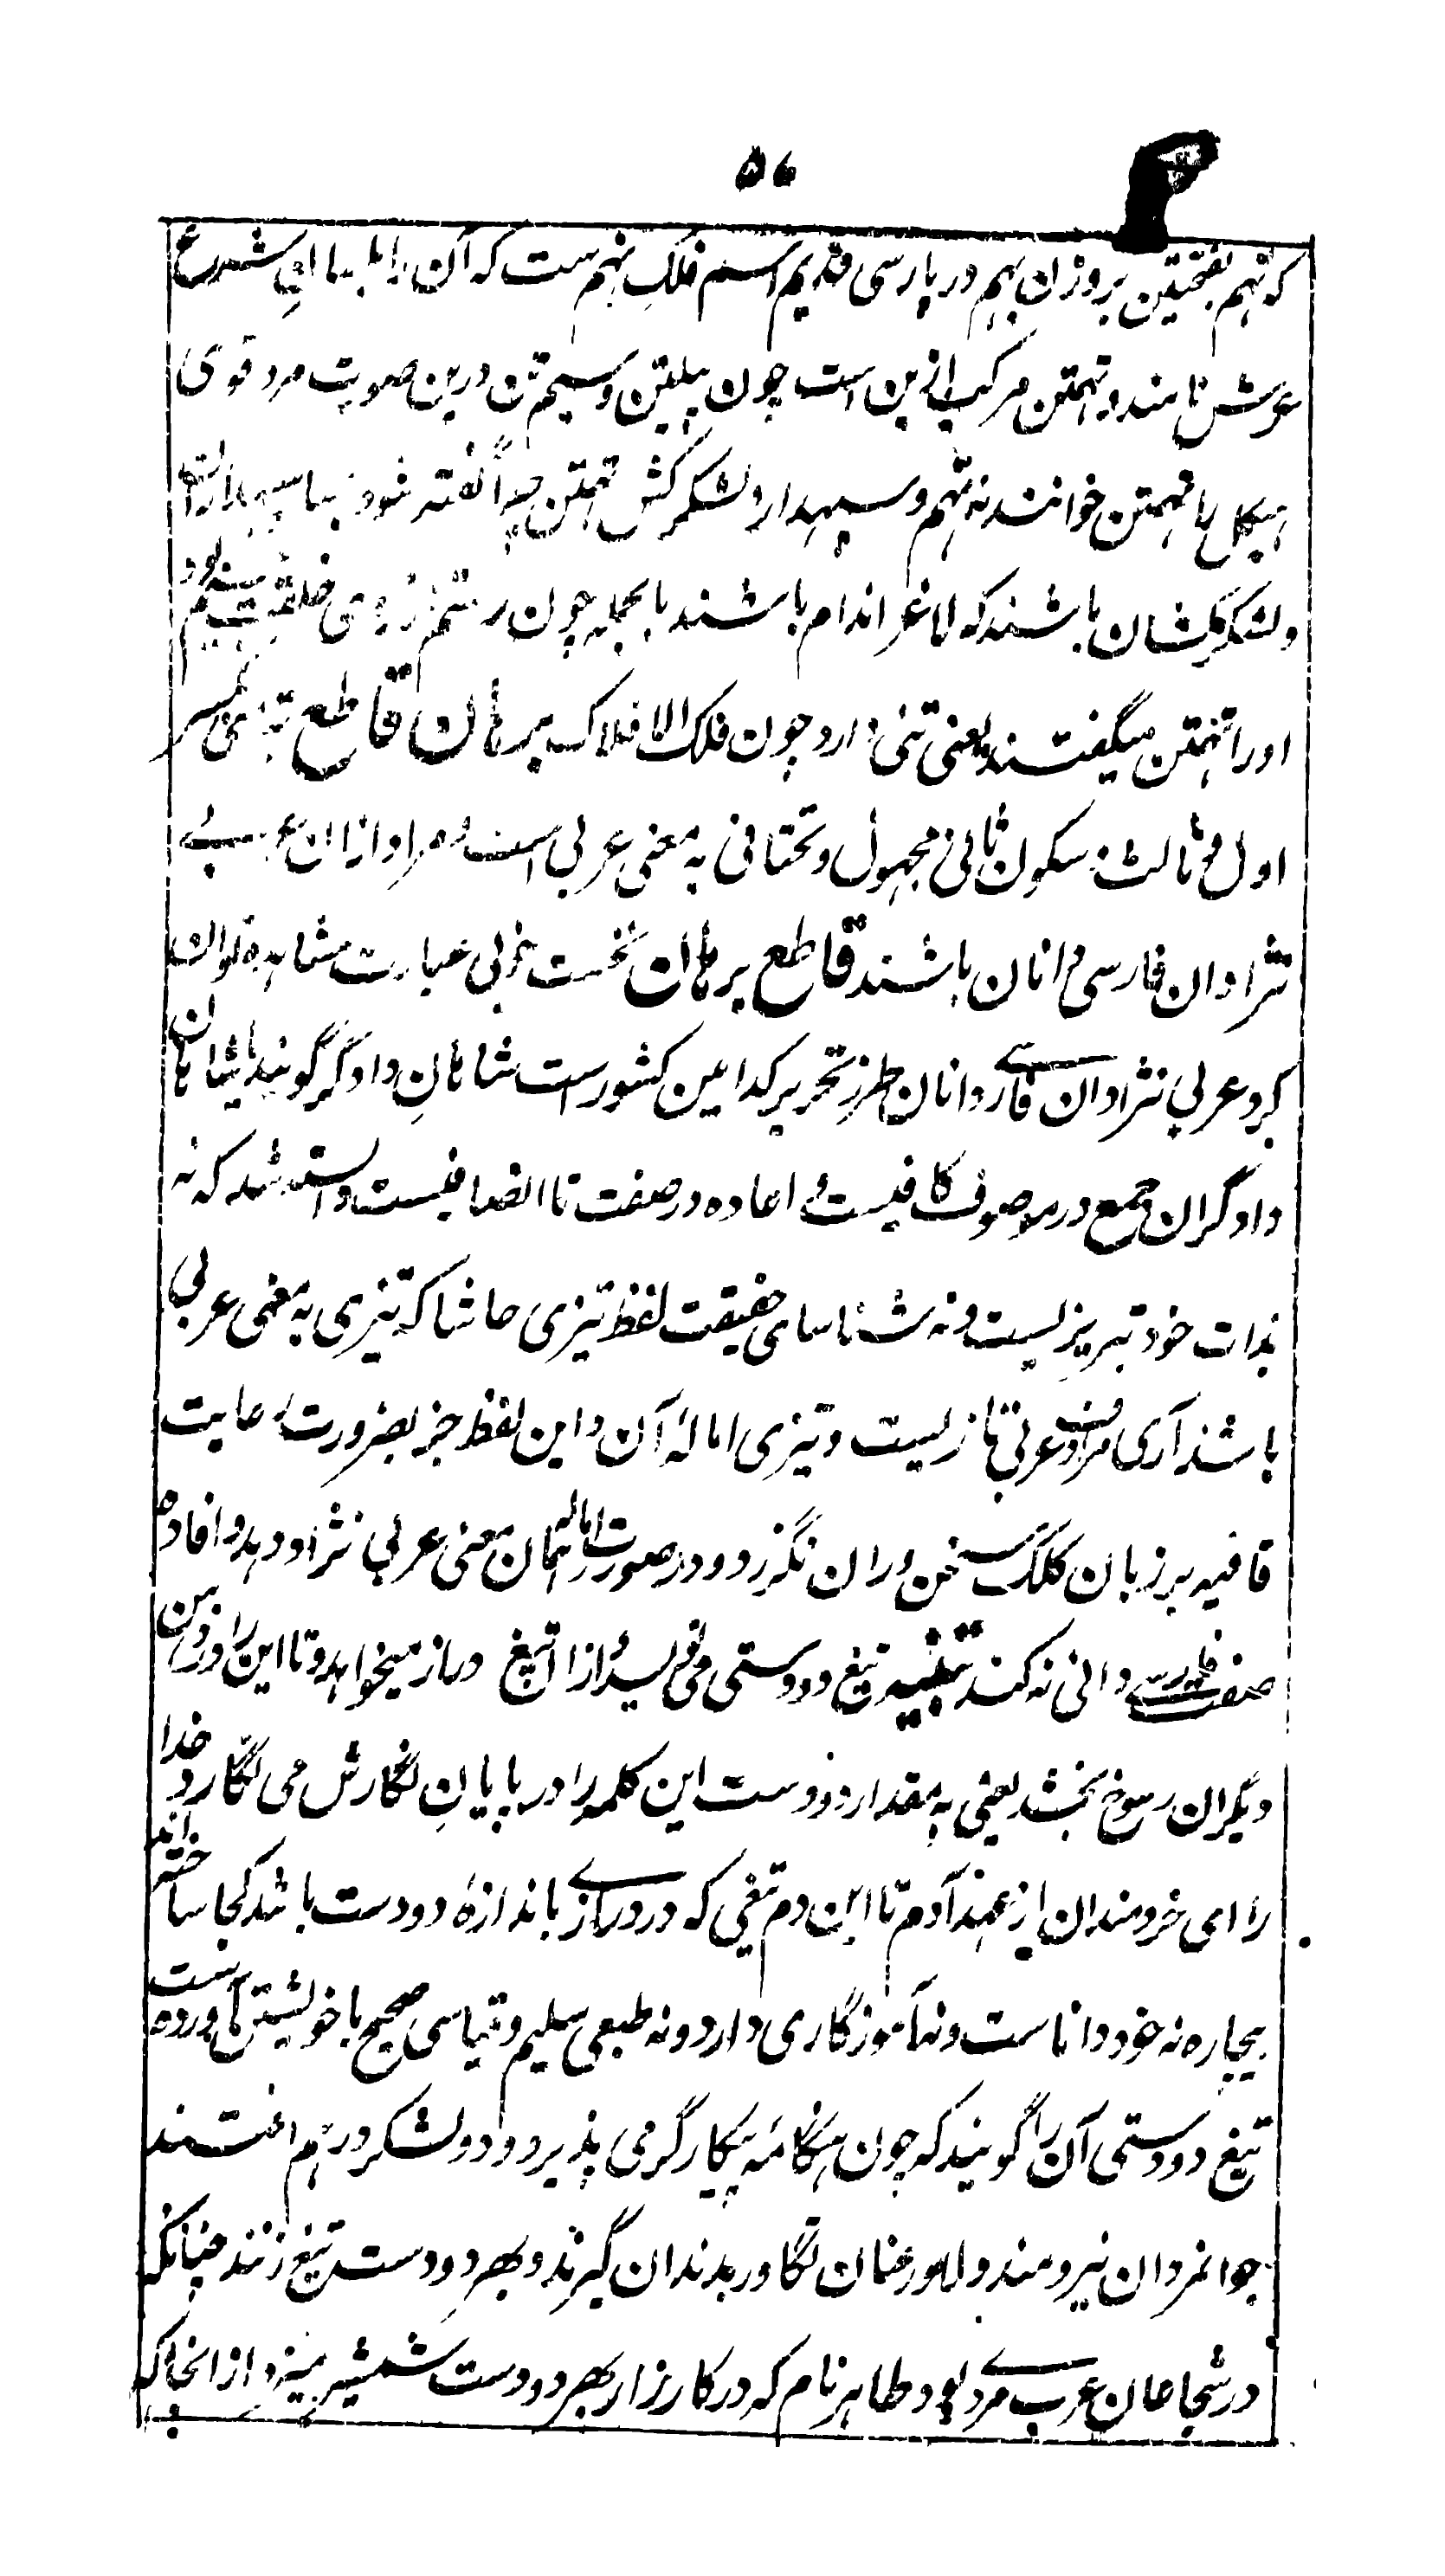 ۵۶
که تهم بفتحتین بروزن بهم در پارسی قدیم اسم فلکِ نهم ست که آن را بلسانِ شرع
عرش نامند و تهمتن مرکب ازین است چون پیلتن و سیمتن درین صورت مرد قوی
هیکل را تهمتن خوانند نه تهم و سپهدار و لشکرکش تهمتن چرا گفته شود بسا سپهداران
و لشکرکشان باشند که لاغر اندام باشند بالجمله چون رستم از روی خلقت جسیم بود
او را تهمتن میگفتند یعنی تنی دارد چون فلک الافلاک برهان قاطع تیزی بکسر
اول و ثالث و سکون ثانی مجهول و تحتانی به معنی عربی است و مراد ازان عربی
نژادان فارسی دانان باشند قاطع برهان نخست خوبی عبارت مشاهده توان
کرد عربی نژادان فارسی دانان طرز تحریر کدامین کشورست شاهانِ دادگر گویند یا شاهان
دادگران جمع در موصوف کافیست و اعاده در صفت ناانصافیست دانسته شد که نه
بذات خود تبریزیست و نه شناسای حقیقت لفظ تیزی حاشا که تیزی به معنی عربی
باشد آری مرادف عربی تازیست و تیزی امالهٔ آن و این لفظ جز بضرورت رعایت
قافیه بر زبان کلک سخن وران نگذرد و در صورت اماله همان معنی عربی نژاد دهد و افاده
صفت فارسی دانی نه کند تنبیه تیغ دودستی می نویسد و ازان تیغ دراز میخواهد و تا این راز در ذهن
دیگران رسوخ بخشد یعنی به مقدار دو دست این کلمه را در پایانِ نگارش می نگارد خدا
را ای خردمندان از عهد آدم تا این دم تیغی که در درازی باندازهٔ دو دست باشد کجا ساخته اند
بیچاره نه خود داناست و نه آموزگاری دارد و نه طبعی سلیم و قیاسی صحیح با خویشتن آورده است
تیغ دودستی آن را گویند که چون هنگامهٔ پیکار گرمی پذیرد و دو لشکر در هم افتند
جوانمردان نیرومند دلاور عنان تگاور بدندان گیرند و بهر دو دست تیغ زنند چنانکه
در شجاعان عرب مردی بود طاهر نام که در کارزار بهر دو دست شمشیر میزد ازانجا که